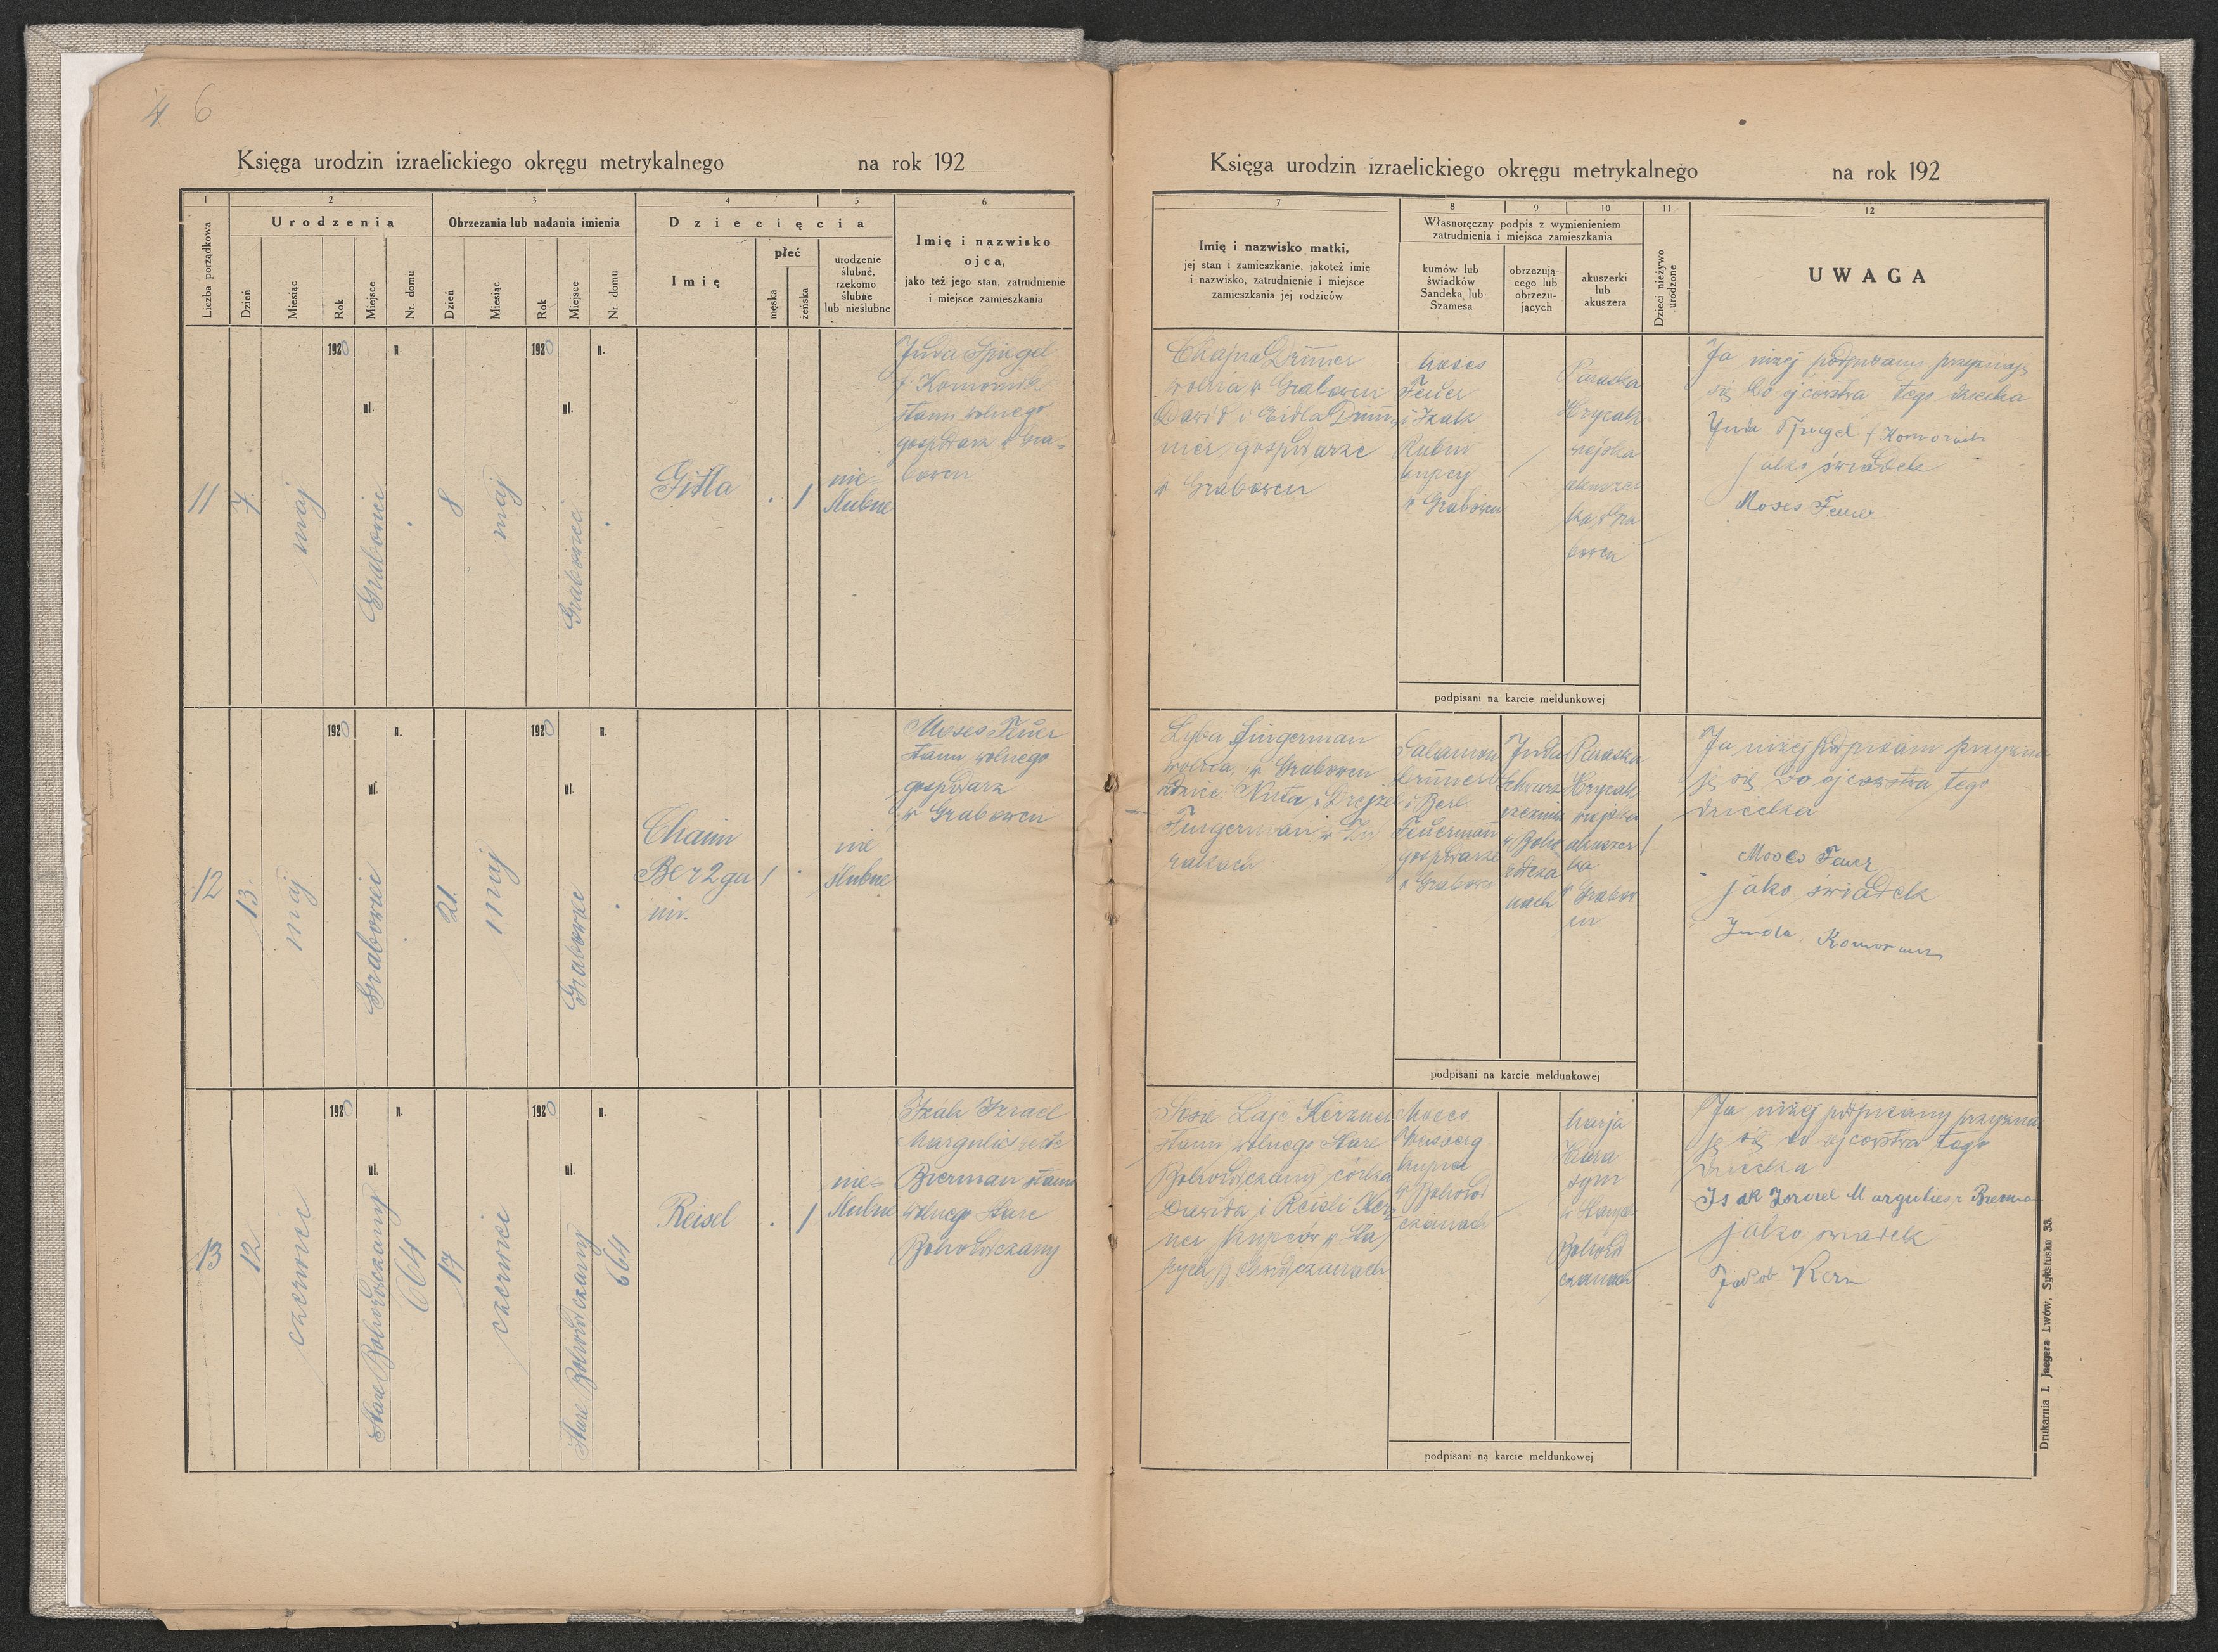 4 6
Księga urodzin izraelickiego okręgu metrykalnego na rok 192
1 2 3 4 5 6
Liczba porządkowa
Urodzenia
Obrzezania lub nadania imienia
Dziecięcia
Dzień
Miesiąc
Rok
Miejsce
Nr. domu
Dzień
Miesiąc
Rok
Miejsce
Nr. domu
Imię
płeć
męska
żeńska
urodzenie
ślubne,
rzekomo
ślubne
lub nieślubne
Imię i nazwisko
ojca,
jako też jego stan, zatrudnienie
i miejsce zamieszkania
11
7.
maj
1920
ul.
Grabowiec
n.
8
maj
1920
ul.
Grabowiec
n.
Gitla
. 1
nie=
ślubne
Juda Spiegel
f Komornik
stanu wolnego
gospodarz w Gra=
bowcu
12
13.
maj
1920
ul.
Grabowiec
n.
21.
maj
1920
ul.
Grabowiec
n.
Chaim
1 .
nie
ślubne
Moses Feuer
stanu wolnego
gospodarz
w Grabowcu
13
12
czerwiec
1920
ul.
Stare Bohorodczany
n.
664
17
czerwiec
1920
ul.
Stare Bohorodczany
n.
664
Reisel
. 1
nie=
ślubne
Izak Izrael
Margulies recte
Bierman stanu
wolnego Stare
Bohorodczany
Księga urodzin izraelickiego okręgu metrykalnego na rok 192
7 8 9 10 11 12
Imię i nazwisko matki,
jej stan i zamieszkanie, jakoteż imię
i nazwisko, zatrudnienie i miejsce
zamieszkania jej rodziców
Własnoręczny podpis z wymienieniem
zatrudnienia i miejsca zamieszkania
kumów lub
świadków
Sandeka lub
Szamesa
obrzezują-
cego lub
obrzezu-
jących
akuszerki
lub
akuszera
Dzieci nieżywo
urodzone
UWAGA
Chajna Drimer
wolna w Grabowcu
Dawid i Eidla Drim
mer gospodarze
w Grabowcu
Moses
Feuer
i Izak
Rubin
kupcy
w Grabowcu
Paraska
Hrycak
wiejska
akuszer
ka w Gra
bowcu
Ja niżej podpisany przyznaję
się do ojcostwa tego dziecka
Juda Spiegel f Komornik
jako świadek
Moses Feuer
podpisani na karcie meldunkowej
Lyba Fingerman
wolna, w Grabowcu
Fingerman w
Salamon
Drimer
i Berl
Feuerman
gospodarze
w Grabowcu
Juda
Schwarz
rzeznik
w Boho
rodcza
nach
Paraska
Hrycak
wiejska
akuszer
ka
w Grabow
cu
Ja niżej podpisany przyzna
ję się do ojcostwa tego
dziecka
Moses Feuer
jako świadek
Juda Komornik
podpisani na karcie meldunkowej
Laje Kerzner
stanu wolnego Stare
Bohorodczany córka
Dawida i Reisli Kerz
ner kupców w Sta
rych Bohorodczanach
Moses
Weisberg
kupiec
w Bohorod
czanach
Marja
Hara
sym
w Starych
Bohorod
czanach
Ja niżej podpisany przyzna
ję się do ojcostwa tego
dziecka
Isak Israel Margulies r Bierman
jako świadek
Jakob Kern
podpisani na karcie meldunkowej
Drukarnia I. Jaegera Lwów, Sykstuska 33.